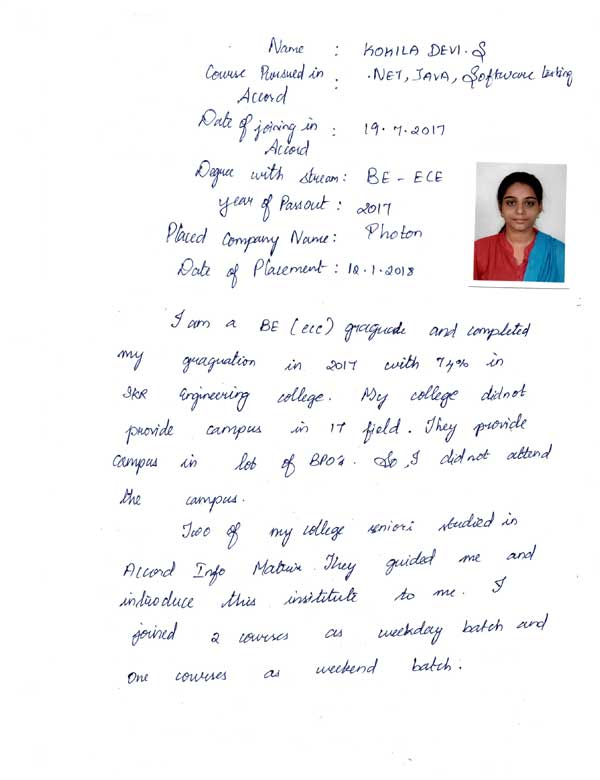 Name : KOKILA DEVI. S
Course Pursued in : .NET, JAVA, Software testing
Accord
Date of joining in : 19.7.2017
Accord
Degree with stream: BE - ECE
Year of Passout : 2017
Placed Company Name: Photon
Date of Placement : 12.1.2018
I am a BE (ece) graguade and completed
my graguation in 2017 with 74% in
SKR Engineering college. My college didnot
provide campus in IT field. They provide
campus in lot of BPO's. So, I didnot attend
the campus.
Two of my college seniors studied in
Accord Info Matrix. They guided me and
introduce this institute to me. I
joined 2 courses as weekday batch and
one courses as weekend batch.